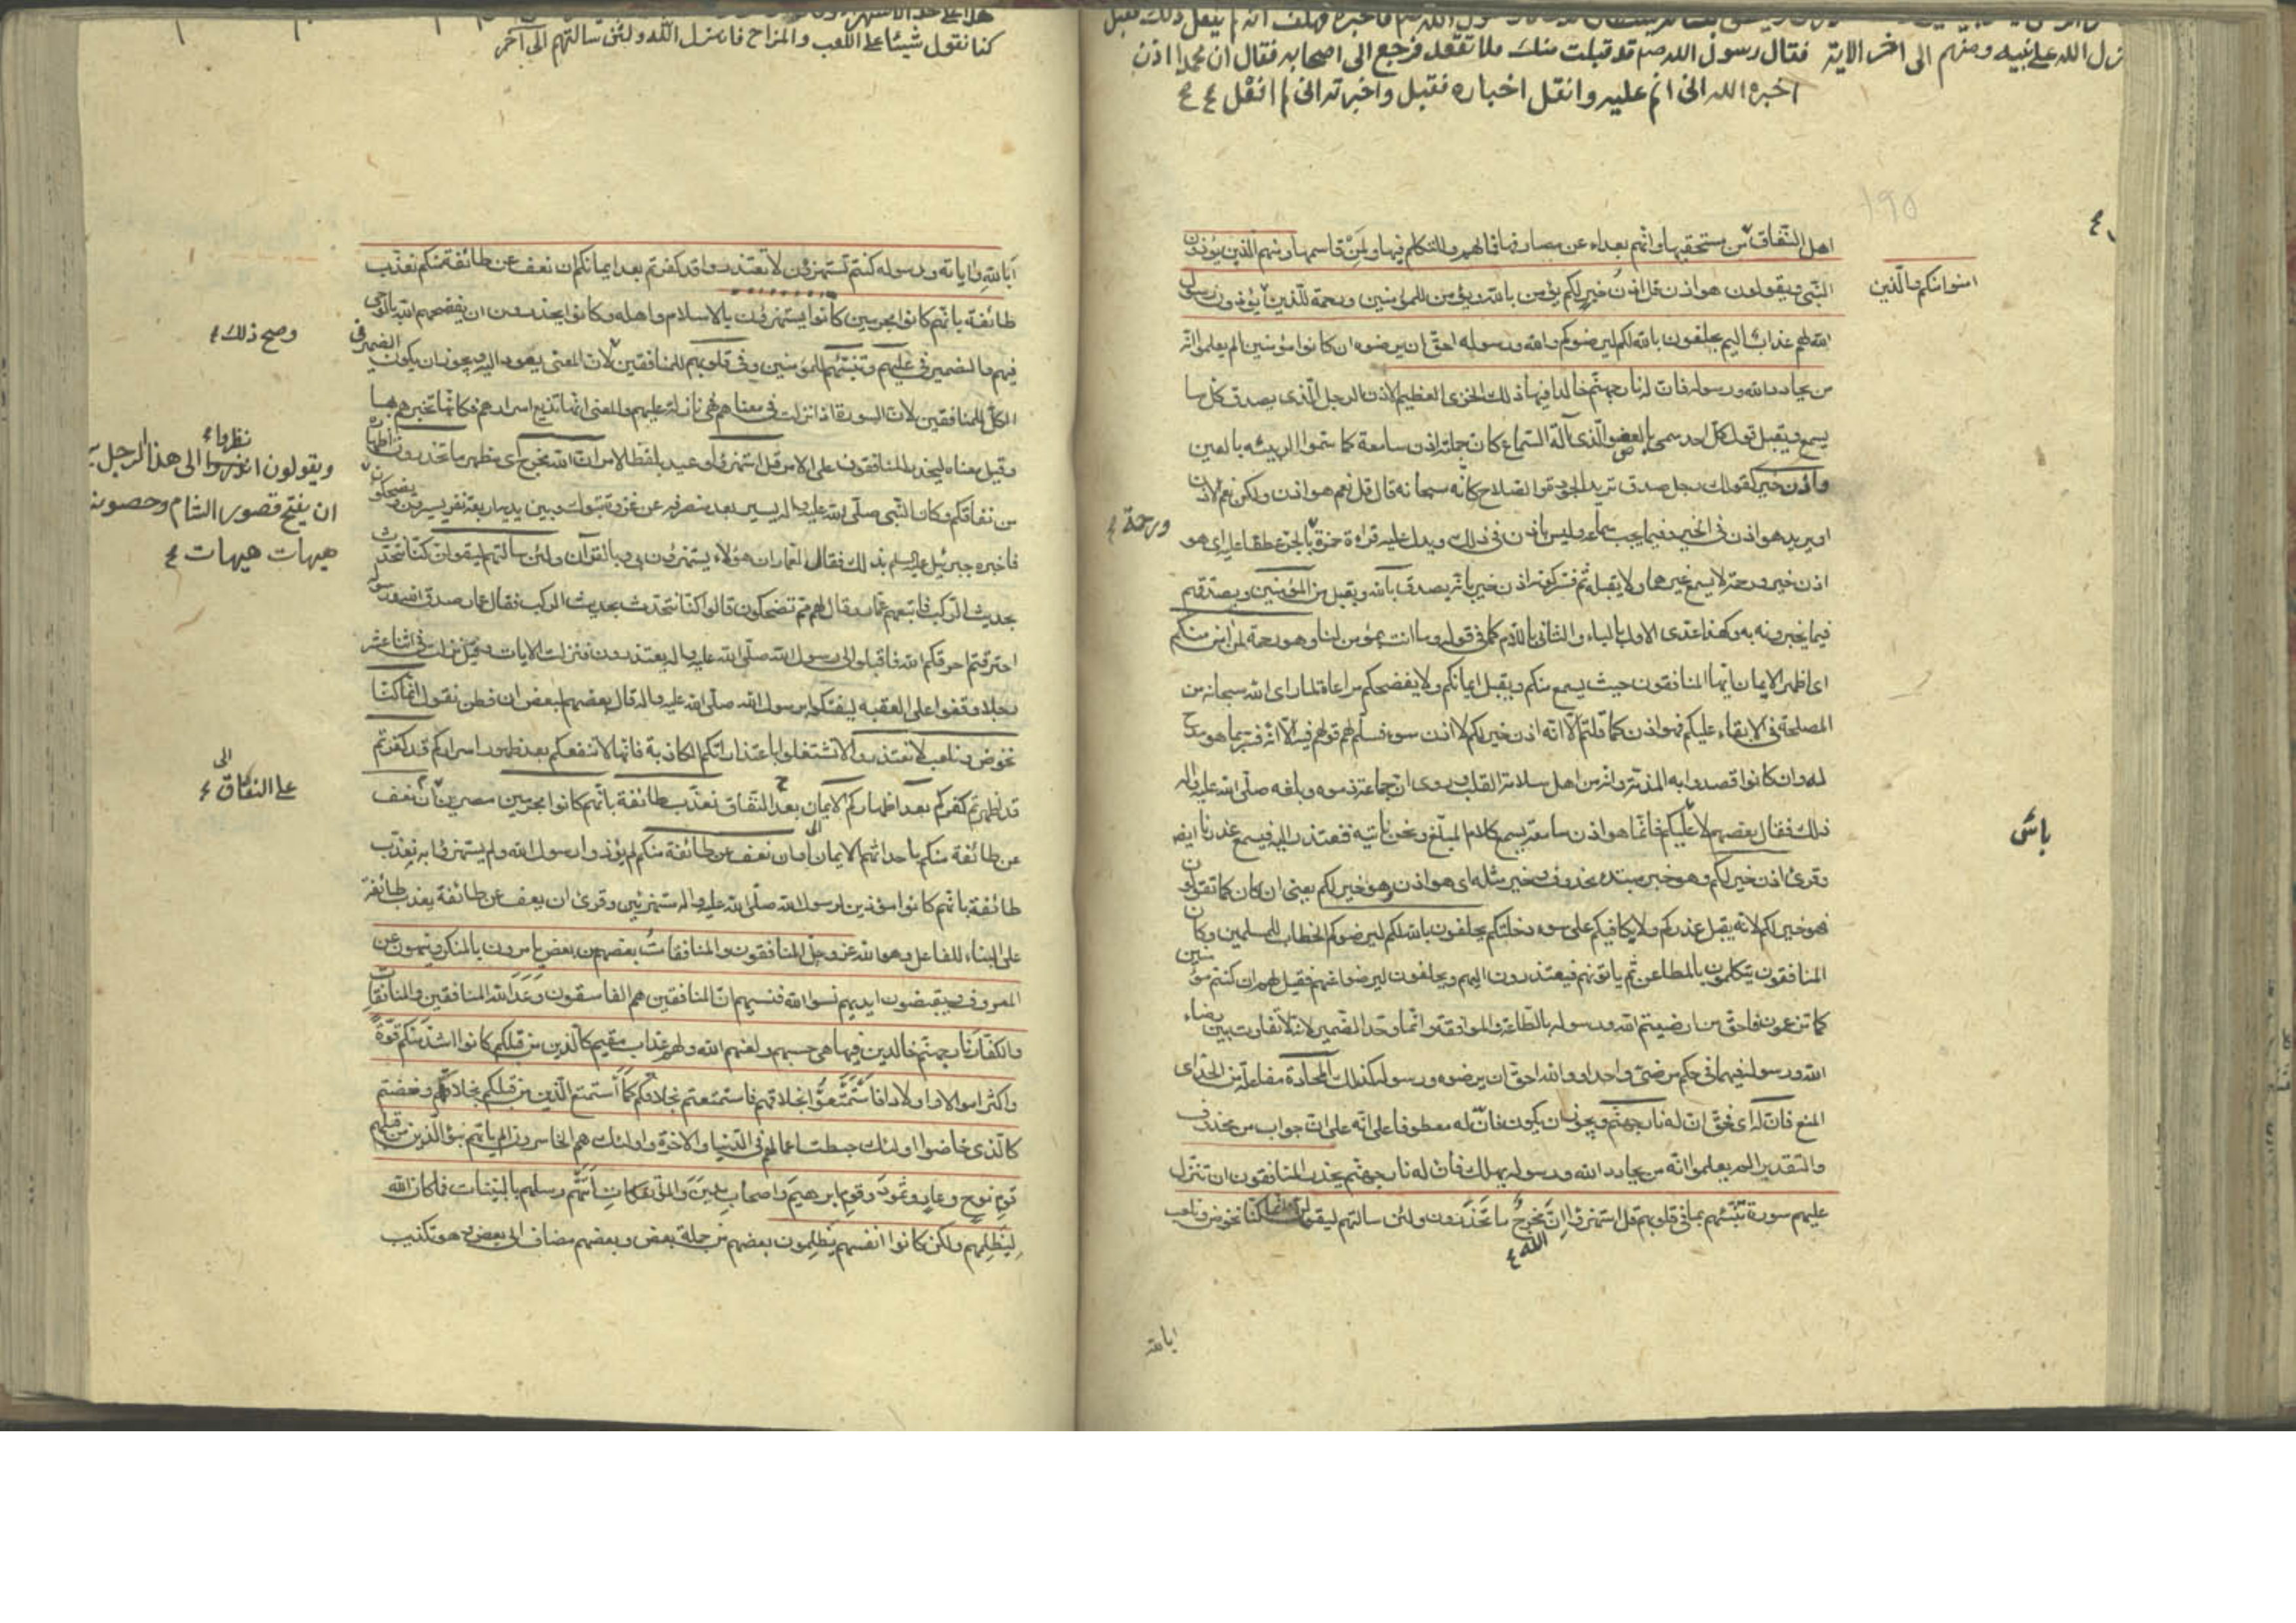 نزل الله على نبيه ومنهم الى اخر الاية فقال رسول الله صم قد قبلت منك فلا تقعد فرجع الى اصحابه فقال ان محمدا اذن
اخبره الله انى انم عليه وانقل اخباره فقبل واخبرته انى لم افعل
اهل النفاق من يستحقها وانهم بعداء عن مصارفها فما لهم وللتكلم فيها ولمن قاسمها ومنهم الذين يؤذون
النبى ويقولون هو اذن قل اذن خير لكم يؤمن بالله ويؤمن للمؤمنين ورحمة للذين يؤذون رسول
امنوا منكم والذين
الله لهم عذاب اليم يحلفون بالله لكم ليرضوكم والله ورسوله احق ان يرضوه ان كانوا مؤمنين الم يعلموا انه
من يحادد الله ورسوله فان له نار جهنم خالدا فيها ذلك الخزى العظيم الاذن الرجل الذى يصدق كل ما
يسمع ويقبل قول كل احد سمى بالعضو الذى آلة السماع كان جملته اذن سامعة كما سموا الربيئه بالعين
واذن خير كقولك رجل صدق تريد الجودة والصلاح كانه سبحانه قال قل نعم هو اذن ولكن نعم الاذن
او يريد هو اذن فى الخير وفيما يجب سماعه وليس باذن فى غير ذلك ويدل عليه قراءة حمزة بالجر عطفا عليه اى هو
ورحمة
اذن خير ورحمة لا يسمع غيرهما ولا يقبله ثم فسر كونه اذن خير بانه يصدق بالله ويقبل من المؤمنين ويصدقهم
فيما يخبرونه به ولهذا عدى الاول بالباء والثانى باللام كما فى قوله وما انت بمؤمن لنا وهو رحمة لمن امن منكم
اى اظهر الايمان ايها المنافقون حيث يسمع منكم ويقبل ايمانكم ولا يفضحكم مراعاة لما راى الله سبحانه من
المصلحة فى الابقاء عليكم فهو اذن كما قلتم الا انه اذن خير لكم لا اذن سوء فسلم لهم قولهم فيه الا انه فسر بما هو مدح
له وان كانوا قصدوا به المذمة وانه من اهل سلامة القلب وروى ان جماعة ذموه وبلغه صلى الله عليه واله
ذلك فقال بعضهم لا عليكم فانما هو اذن سامعة يسمع كلام المبلغ ونحن ناتيه فنعتذر اليه فيسمع عذرنا ايضا
باس
وقرئ اذن خير لكم وهو خبر مبتدا محذوف وخير مثله اى هو اذن هو خير لكم يعنى ان كان كما تقولون
فهو خير لكم لانه يقبل عذركم ولا يكافيكم على سوء دخلتكم يحلفون بالله لكم ليرضوكم الخطاب للمسلمين وكان
المنافقون يتكلمون بالمطاعن ثم ياتونهم فيعتذرون اليهم ويحلفون ليرضوا عنهم فقيل لهم ان كنتم مؤمنين
كما تزعمون فاحق من ارضيتم الله ورسوله بالطاعة والموافقة وانما وحد الضمير لانه لا تفاوت بين رضاء
الله ورسوله فهما فى حكم مرضى واحد او والله احق ان يرضوه ورسوله كذلك المحادة مفاعلة من الحد اى
المنع فان له اى فحق ان له نار جهنم ويجوز ان يكون فان له معطوفا على انه على ان جواب من محذوف
والتقدير الم يعلموا انه من يحادد الله ورسوله يهلك فان له نار جهنم يحذر المنافقون ان تنزل
عليهم سورة تنبئهم بما فى قلوبهم قل استهزؤا ان الله مخرج ما تحذرون ولئن سالتهم ليقولن انما كنا نخوض ونلعب
ابالله
كنا نقول شيئا على اللعب والمزاح فانزل الله ولئن سالتهم الى آخر
ابالله واياته ورسوله كنتم تستهزؤن لا تعتذروا قد كفرتم بعد ايمانكم ان نعف عن طائفة منكم نعذب
طائفة بانهم كانوا مجرمين كانوا يستهزؤن بالاسلام واهله وكانوا يحذرون ان يفضحهم الله بالوحى
فيهم والضمير فى عليهم وتنبئهم للمؤمنين وفى قلوبهم للمنافقين لان المعنى يعود اليه ويجوز ان يكون الضمير فى
وصح ذلك
الكل للمنافقين لان السورة اذا نزلت فى معناهم فهى نازلة عليهم والمعنى انها تذيع اسرارهم فكانما تخبرهم بها
وقيل معناه ليحذر المنافقون على الامر قل استهزؤا وعيد بلفظ الامر ان الله مخرج اى مظهر ما تحذرون اظهاره
من نفاقكم وكان النبى صلى الله عليه واله يسير بعد منصرفه عن غزوة تبوك وبين يديه اربعة نفر يسيرون ويضحكون
ويقولون انظروا الى هذا الرجل يريد
ان يفتح قصور الشام وحصونه
هيهات هيهات
فاخبره جبرئيل عليه السلم بذلك فقال لعمار ان هؤلاء يستهزؤن بى وبالقرآن ولئن سالتهم ليقولن كنا نتحدث
بحديث الركب فاتبعهم عمار وقال لهم مم تضحكون قالوا كنا نتحدث بحديث الركب فقال عمار صدق الله ورسوله
احترقتم احرقكم الله فاقبلوا الى رسول الله صلى الله عليه واله يعتذرون فنزلت الايات وقيل نزلت فى اثنا عشر
رجلا وقفوا على العقبه ليفتكوا برسول الله صلى الله عليه واله قال بعضهم لبعض ان فطن نقول انما كنا
نخوض ونلعب لا تعتذروا لا تشتغلوا باعتذاراتكم الكاذبة فانها لا تنفعكم بعد ظهور اسراركم قد كفرتم
قد اظهرتم كفركم بعد اظهاركم الايمان بعد النفاق نعذب طائفة بانهم كانوا مجرمين مصرين ان نعف
الى
على النفاق
عن طائفة منكم باحداثهم الايمان او ان نعف عن طائفة منكم لم يؤذوا رسول الله ولم يستهزؤا به نعذب
طائفة بانهم كانوا مؤذين لرسول الله صلى الله عليه واله مستهزئين وقرئ ان يعف عن طائفة يعذب طائفة
على البناء للفاعل وهو الله عز وجل المنافقون والمنافقات بعضهم من بعض يامرون بالمنكر وينهون عن
المعروف ويقبضون ايديهم نسوا الله فنسيهم ان المنافقين هم الفاسقون وعد الله المنافقين والمنافقات
والكفار نار جهنم خالدين فيها هى حسبهم ولعنهم الله ولهم عذاب مقيم كالذين من قبلكم كانوا اشد منكم قوة
واكثر اموالا واولادا فاستمتعوا بخلاقهم فاستمتعتم بخلاقكم كما استمتع الذين من قبلكم بخلاقهم وخضتم
كالذى خاضوا اولئك حبطت اعمالهم فى الدنيا والاخرة واولئك هم الخاسرون الم ياتهم نبؤ الذين من قبلهم
قوم نوح وعاد وثمود وقوم ابرهيم واصحاب مدين والمؤتفكات اتتهم رسلهم بالبينات فما كان الله
ليظلمهم ولكن كانوا انفسهم يظلمون بعضهم من جملة بعض وبعضهم مضاف الى بعض وهو تكذيب